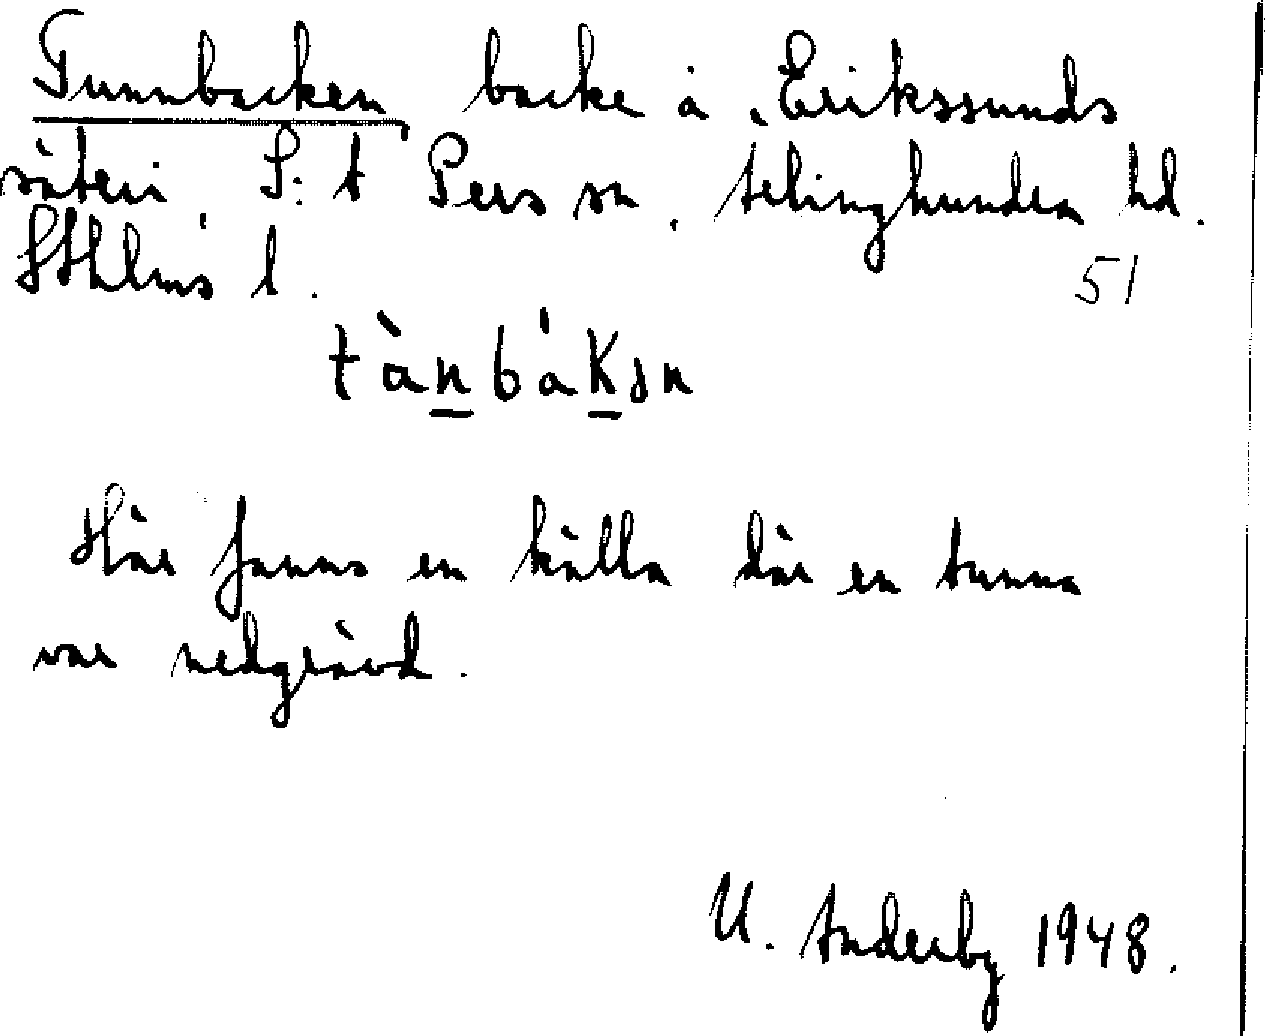 Tunnbacken, backe å Erikssunds
säteri, S:t Pers sn, Ärlinghundra hd.
Sthlms l.
51
Här fanns en källa där en tunna
var nedgrävd.
U. Anderby 1948.